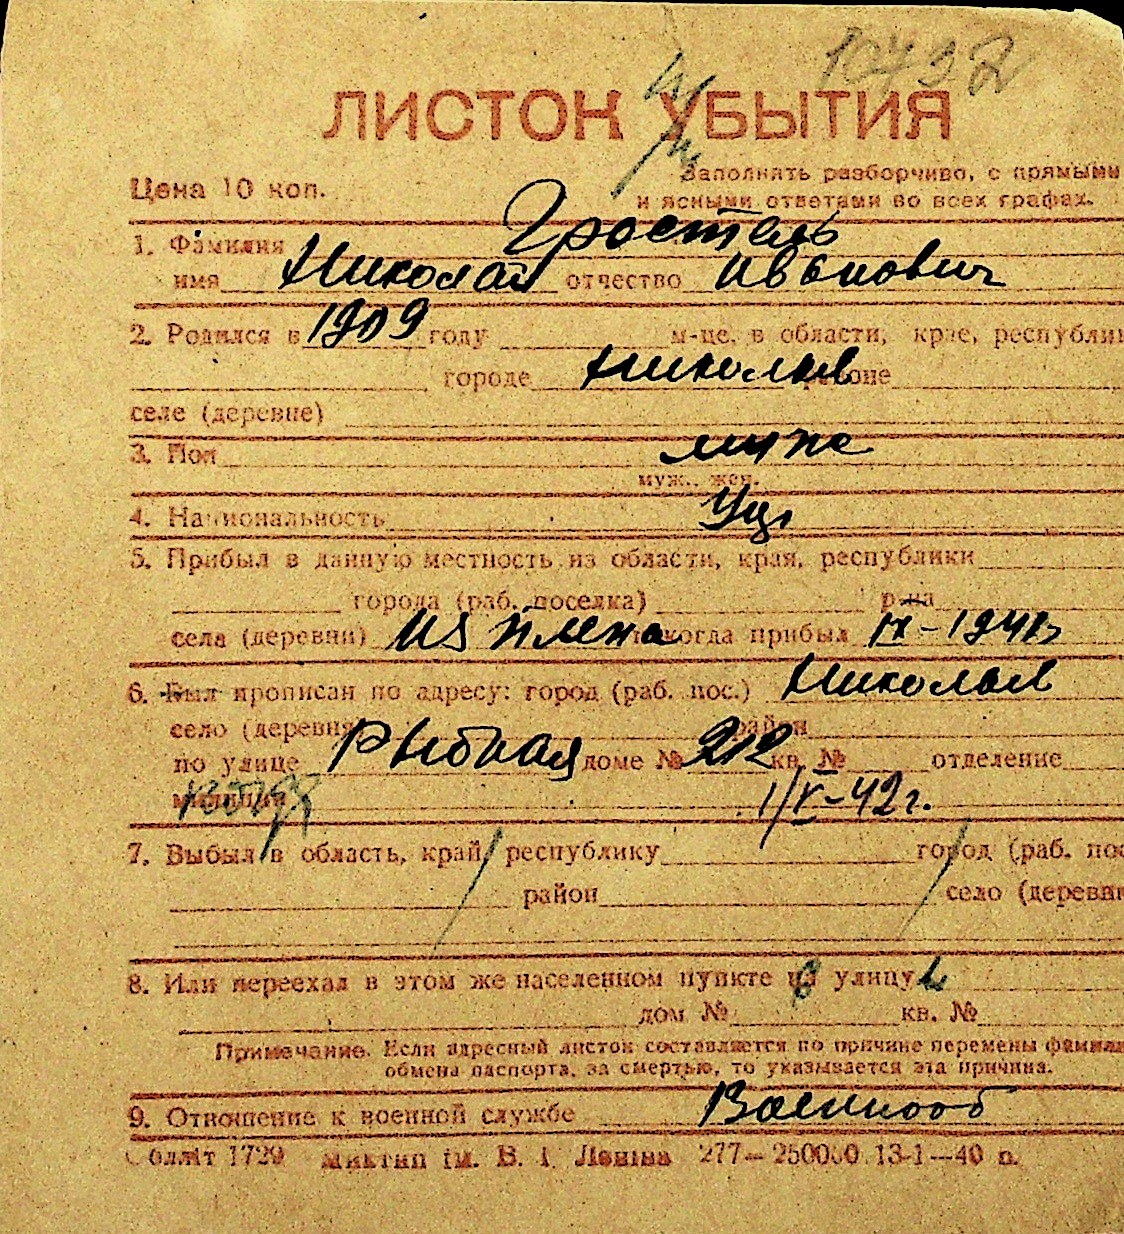 10432
ЛИСТОК УБЫТИЯ
Цена 10 коп.
Заполнять разборчиво, с прямыми
и ясными ответами во всех графах.
1. Фамилия Гростель
имя Николай отчество Иванович
2. Родился в 1909 году м-це, в области, крае, республи
городе Николаев районе
селе (деревне)
3. Пол муж
муж., жен.
4. Национальность
5. Прибыл в данную местность из области, края, республики
города (раб. поселка) р-на
села (деревни) из плена и когда прибыл IX-1941г
6. Был прописан по адресу: город (раб. пос.) Николаев
село (деревня район
по улице Рыбная доме № 212 кв. № отделение
милиции 1/V-42г.
7. Выбыл в область, край, республику город (раб. пос
район село (деревн
8. Или переехал в этом же населенном пункте на улицу
дом № кв. №
Примечание. Если адресный листок составляется по причине перемены фамил
обмена паспорта, за смертью, то указывается эта причина.
9. Отношение к военной службе Военнооб
Облліт 1729 ім. В. І. Леніна 277—250000 13-1—40 р.